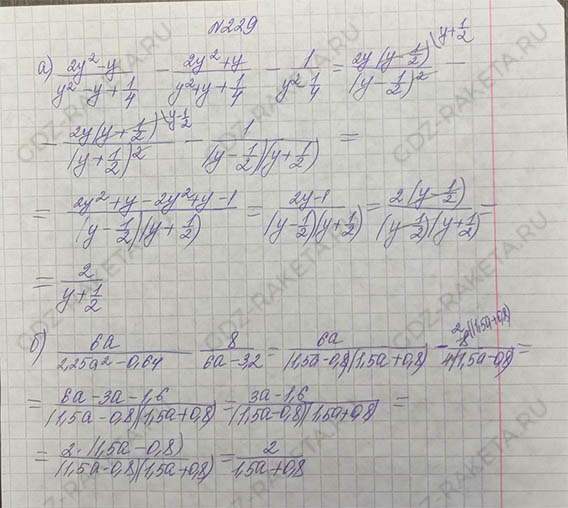 №229
а) (2y² - y)/(y² - y + 1/4) - (2y² + y)/(y² + y + 1/4) - 1/(y² - 1/4) = (2y(y - 1/2)^{\y + 1/2})/((y - 1/2)²) -
- (2y(y + 1/2)^{\y - 1/2})/((y + 1/2)²) - 1/((y - 1/2)(y + 1/2)) =
= (2y² + y - 2y² + y - 1)/((y - 1/2)(y + 1/2)) = (2y - 1)/((y - 1/2)(y + 1/2)) = (2(y - 1/2))/((y - 1/2)(y + 1/2)) =
= 2/(y + 1/2)
б) 6a/(2,25a² - 0,64) - 8/(6a - 3,2) = 6a/((1,5a - 0,8)(1,5a + 0,8)) - (2 8^{\(1,5a + 0,8)})/(4(1,5a - 0,8)) =
= (6a - 3a - 1,6)/((1,5a - 0,8)(1,5a + 0,8)) = (3a - 1,6)/((1,5a - 0,8)(1,5a + 0,8)) =
= (2 · (1,5a - 0,8))/((1,5a - 0,8)(1,5a + 0,8)) = 2/(1,5a + 0,8)
GDZ-RAKETA.RU